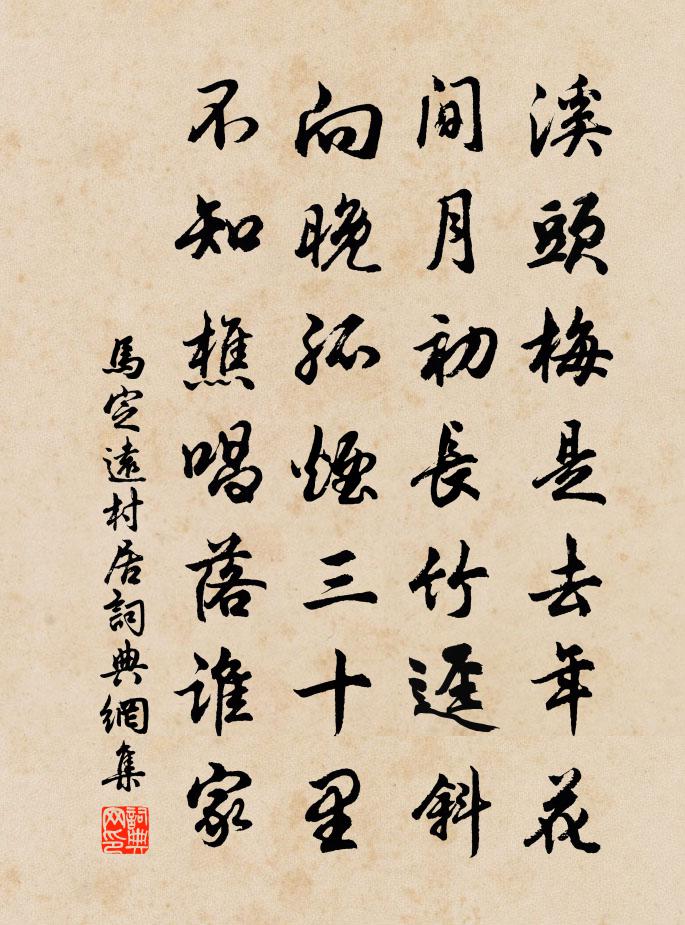 溪頭梅是去年花
間月初長竹逕斜
向晚孤煙三十里
不知樵唱落誰家
馬定遠村居詞典網集
詞典网印